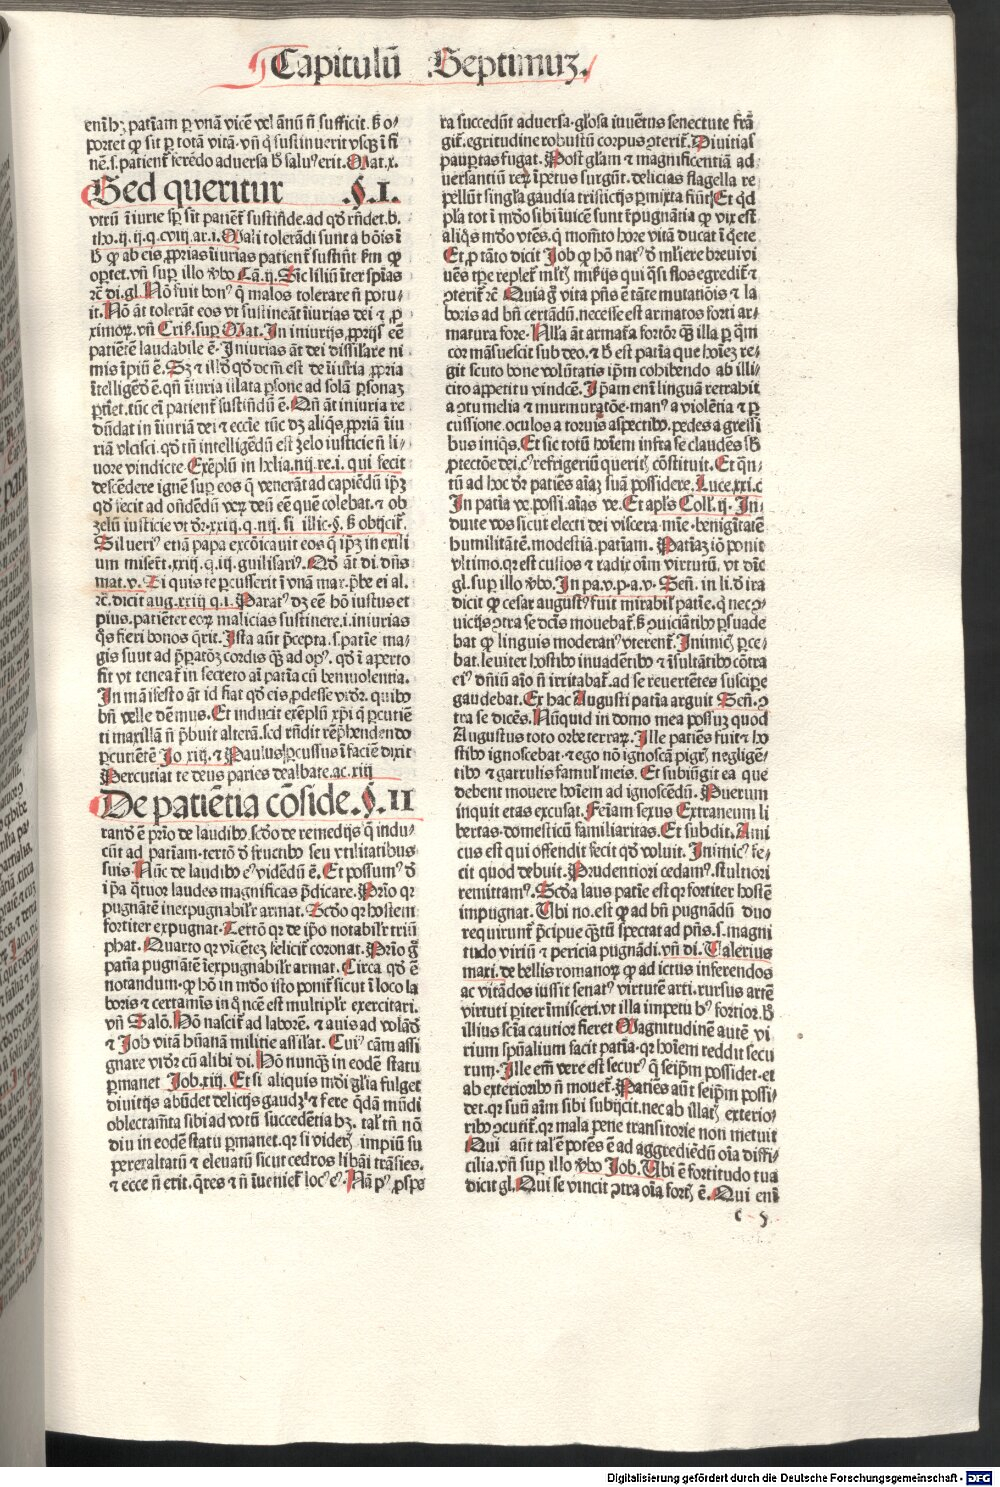 Capitulū Septimuꝫ.
enī hꝫ patiam ꝑ vnā vicē vel ānū nō sufficit. ꝫ o-
portet ꝙ sit ꝑ totā vitā. vñ
nē. s. patient ferēdo adversa ꝫ saluꝰ erit. Mat. x.
Sed queritur .§. I.
vtrū
tho. ij. ij. q. cviij. ar. i. Mali tolerādi sunt a bōis ī
ꝙ ab eis ꝓprias iniurias patient sustinēt
oꝑtet. vñ suꝑ illo ꝟbo Cā. ij. Sic liliū īter spīas
rc̄ di. gl. Nō fuit bonꝰ q̄ malos tolerare nō potu-
it. Nō āt tolerāt eos vt sustineāt iniurias dei ⁊ ꝓ
ximoꝝ. vñ Cris. suꝑ Mat. In iniurijs ꝓprijs eē
patiētē laudabile ē. Iniurias āt dei dissilare ni
mis īpiū ē.
intelligēdū ē. qñ iniuria illata ꝑsone ad solā ꝑsonaꝫ
ꝑtinet. tūc em̄ patient sustinēdū ē. Qñ āt iniuria re
dūdat in iniuriā dei ⁊ eccīe tūc dꝫ aliqs ꝓpriā iniu
riā vlcisci. qd tn̄ intelligēdū est zelo iusticie nō li-
vore vindicte Exēplū in helia. iiij. re. i. qui fecit
descēdere ignē suꝑ eos q̄ venerāt ad capiēdū ipꝫ
qd fecit ad oñdēdū veꝝ deū eē quē colebat. ⁊ ob
zelū iusticie vt dr. xxiij. q. iiij. si illic. §. ꝫ obijcit.
Silueriꝰ etiā papa excōicauit eos q̄ ipꝫ in exili
um miserūt. xxiij. q. iij. guilisariꝰ. Qd āt di. dn̄s
mat. v. Si quis te ꝑcusserit ī vnā max. p̄be ei al.
rc̄. dicit aug. xxiij q. i. Paratꝰ dꝫ eē hō iustus et
pius. patiēter eoꝝ malicias sustinere. i. iniurias
qs fieri bonos q̄rit. Ista aūt p̄cepta. s. patīe ma-
gis sunt ad p̄ꝑatōꝫ cordis qꝫ ad opꝰ. qd ī aperto
fit vt teneat in secreto aī patīa cū beniuolentia.
In māifesto āt id fiat qd eis ꝓdesse videt. quibꝰ
bñ velle dēmus. Et inducit exēplū xp̄i q̄ ꝑcutiē
ti maxillā nō p̄buit alterā. sed rn̄dit rep̄hendendo
ꝑcutiētē Jo. xiij. ⁊ Paulus ꝑcussus ī faciē dixit
Percutiat te deus paries dealbate. ac. xxiij
De patiētia cōside. §. II
rand ē prīo de laudibꝰ. scdo de remedijs q̄ indu-
cūt ad patiam. tertō de fructibꝰ seu vtilitatibus
suis. Nūc de laudibꝰ eꝰ vidēdū ē. Et possumꝰ de
ipa q̄tuor laudes magnificas p̄dicare. Prīo qr
pugnātē inexpugnabilr armat. Scdo qr hostem
fortiter expugnat. Tertō qr de ipo notabilr triū
phat. Quarto qr vīcētes felicit coronat. Prīo g̅
patīa pugnātē īexpugnabilr armat. Circa qd ē
notandum. ꝙ hō in mūdo isto ponit sicut ī loco la
boris ⁊ certamīs in q̄ necē est multiplr exercitari.
vñ Salō. Hō nascit ad laborē. ⁊ auis ad volādū
⁊ Job vitā hūanā militie assilat. Cuiꝰ cām assi
gnare vr cū alibi di. Hō nunqꝫ in eodē statu
ꝑmanet Job. xiiij. Et si aliquis mūdi glīa fulget
diuitijs abūdet delicijs gaudꝫ ⁊ fere qdā mūdi
oblectamēta sibi ad votū succedētia hꝫ. talr tn̄ nō
diu in eodē statu ꝑmanet. qr si viderꝫ impiū su
ꝑexaltatū ⁊ eleuatū sicut cedros libāi trāsies.
⁊ ecce nō erit. q̄res ⁊ nō īueniet locꝰ eꝰ. Nā pꝰ ꝓspe
ra succedūt aduersa. glosa iuuētus senectute frā
git. egritudine robustū corpus ꝯterit. Diuitias
pauꝑtas fugat. Post glam ⁊ magnificentiā ad
uersantiū reꝝ īpetus surgūt. delicias flagella re
pellūt singla gaudia tristicijs ꝑmixta fiūt. Et qd
pla tot ī mūdo sibi īuicē sunt īpugnātia ꝙ vix est
aliqs mūdo vtēs. q̄ momēto hore vitā ducat ī qete
Et ꝓ tāto dicit Job ꝙ hō natꝰ de mliere breui vi
uēs tꝑe replet mltis miserijs qui qsi flos egredit ⁊
ꝯterit rc̄ Quia g̅ vita p̄ns ē tāte mutatiōis ⁊ la
boris ad bñ certandū. necesse est armatos forti ar-
matura fore. Nlla āt armata fortior qꝫ illa ꝑ qm̄
cor māsuescit sub deo. ⁊ ꝫ est patīa que hoīeꝫ re-
git scuto bone volūtatis ipm cohibendo ab illi-
cito appetitu vindcē. Ipam enī linguā retrahit
a ꝯtumelia ⁊ murmuratōe. manꝰ a violētia ⁊ ꝑ
cussione. oculos a toruis aspectibꝰ. pedes a gressi
bus iniqs. Et sic totū hoīem infra se claudēs sb
ꝓtectōe dei. cꝰ refrigeriū querit cōstituit. Et qn̄-
tū ad hoc dr patiēs aīaꝫ suā possidere. Luce. xxi. c
In patīa ve. possi. aīas ve. Et apls Coll. iij. In-
duite vos sicut electi dei viscera mīe. benignitatē
humilitātē. modestiā. patiam. Patiaꝫ iō ponit
vltimo. qr est custos ⁊ radix oīm virtutū. vt dic̄
gl. suꝑ illo ꝟbo. In pa. v. p. a. v. Señ. in li. de ira
dicit ꝙ cesar augustꝰ fuit mirabil patīe. q̄ nec ꝯ-
uicijs ꝯtra se dictis mouebat. ꝫ ꝯuiciātibꝰ ꝑsuade
bat ꝙ linguis moderatiꝰ vterent. Inimicꝫ ꝑce-
bat. leuiter hostibꝰ inuadētibꝰ ⁊ īsultātibꝰ cōtra
eiꝰ dn̄iū aīo nō irritabat. ad se reuertētes suscipe
gaudebat. Ex hac Augusti patīa arguit Señ. ꝯ
tra se dicēs. Nūquid in domo mea possuꝫ quod
Augustus toto orbe terraꝝ. Ille patiēs fuit ⁊ ho
stibꝰ ignoscebat. ⁊ ego nō ignoscā pigrꝫ negligē-
tibꝰ ⁊ garrulis famulꝫ meis. Et subiūgit ea que
debent mouere hoīem ad ignoscēdū. Puerum
inquit etas excusat. Feīam sexus Extraneum li
bertas. domesticū familiaritas. Et subdit. Ami
cus est qui offendit fecit qd voluit. Inimicꝰ fe-
cit quod debuit. Prudentiori cedamꝰ. stultiori
remittamꝰ. Scda laus patīe est qr fortiter hostē
impugnat. Vbi no. est ꝙ ad bñ pugnādū duo
requirunt p̄cipue qꝫtū spectat ad p̄ns. s. magni
tudo viriū ⁊ pericia pugnādi. vñ di. Valerius
maxi. de bellis romanoꝝ ꝙ ad ictus inferendos
ac vitādos iussit senatꝰ virtutē arti. rursus artē
virtuti ꝑiter imisceri. vt illa impetu hꝰ fortior. ꝫ
illius scīa cautior fieret Magnitudinē autē vi
rium spūalium facit patīa. qr hoīem reddit secu
rum. Ille em̄ vere est securꝰ q̄ seipm possidet. et
ab exterioribꝰ nō mouet. Patiēs aūt seipm possi-
det. qr suū aīm sibi subijcit. nec ab illatꝫ exterio-
ribꝰ ꝯcutit. qr mala pene transitorie non metuit
Qui aūt talꝫ ē potēs ē ad aggrediēdū oīa diffi-
cilia. vñ suꝑ illo ꝟbo Job. Vbi ē fortitudo tua
dicit gl. Qui se vincit ꝯtra oīa fortꝫ ē. Qui enī
c y
Digitalisierung gefördert durch die Deutsche Forschungsgemeinschaft - DFG